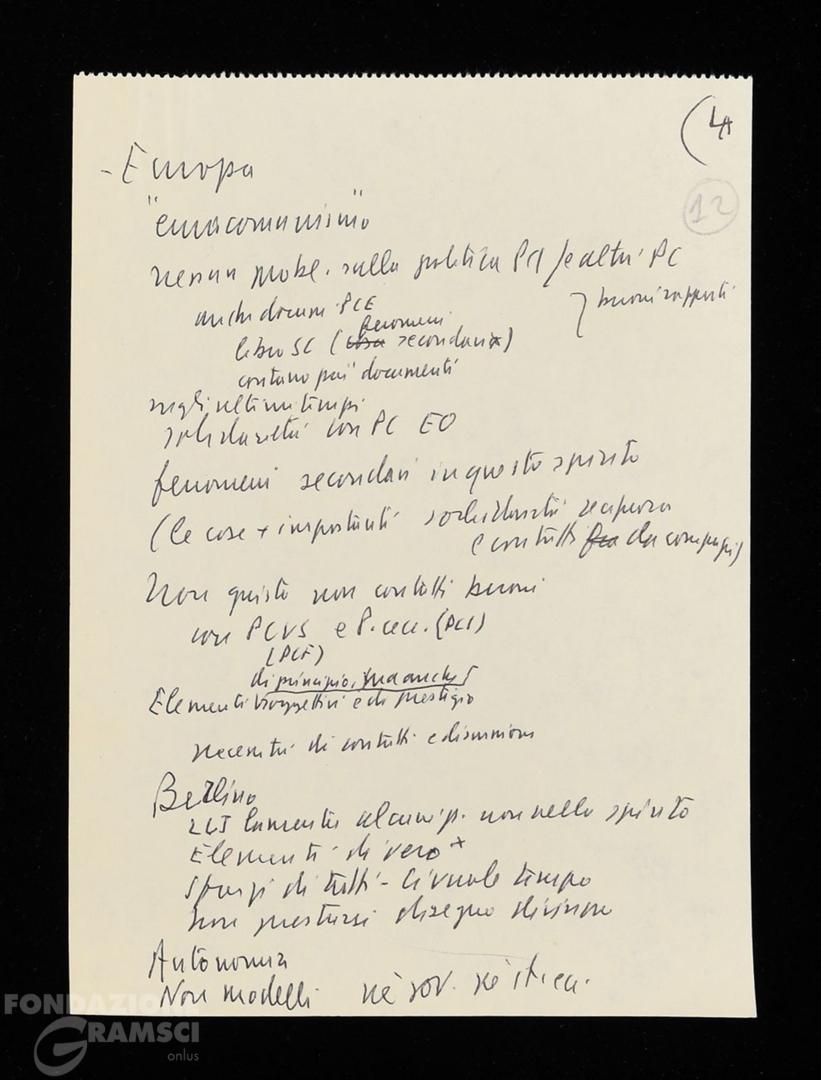 (4A
12
- Europa
"eurocomunismo"
nessun probl. sulla politica PCI /e altri PC
anche docum. PCE } buoni rapporti
fenomeni
libro SC (cosa secondari)
contano più documenti
negli ultimi tempi
solidarietà con PC EO
fenomeni secondari in questo spirito
(le cose + importanti solidarietà reciproca
e contatti fra da compagni)
Non giusto non contatti buoni
con PCUS e P. cec. (PCI)
(PCF)
di principio, ma anche
Elementi soggettivi e di prestigio
necessità di contatti e discussioni
Berlino
LCJ lamenta alcuni p. non nello spirito
Elementi di vero +
Sforzi di tutti - Ci vuole tempo
non prestarsi disegno divisione
Autonomia
Non modelli nè sov. nè
FONDAZIONE
GRAMSCI
onlus